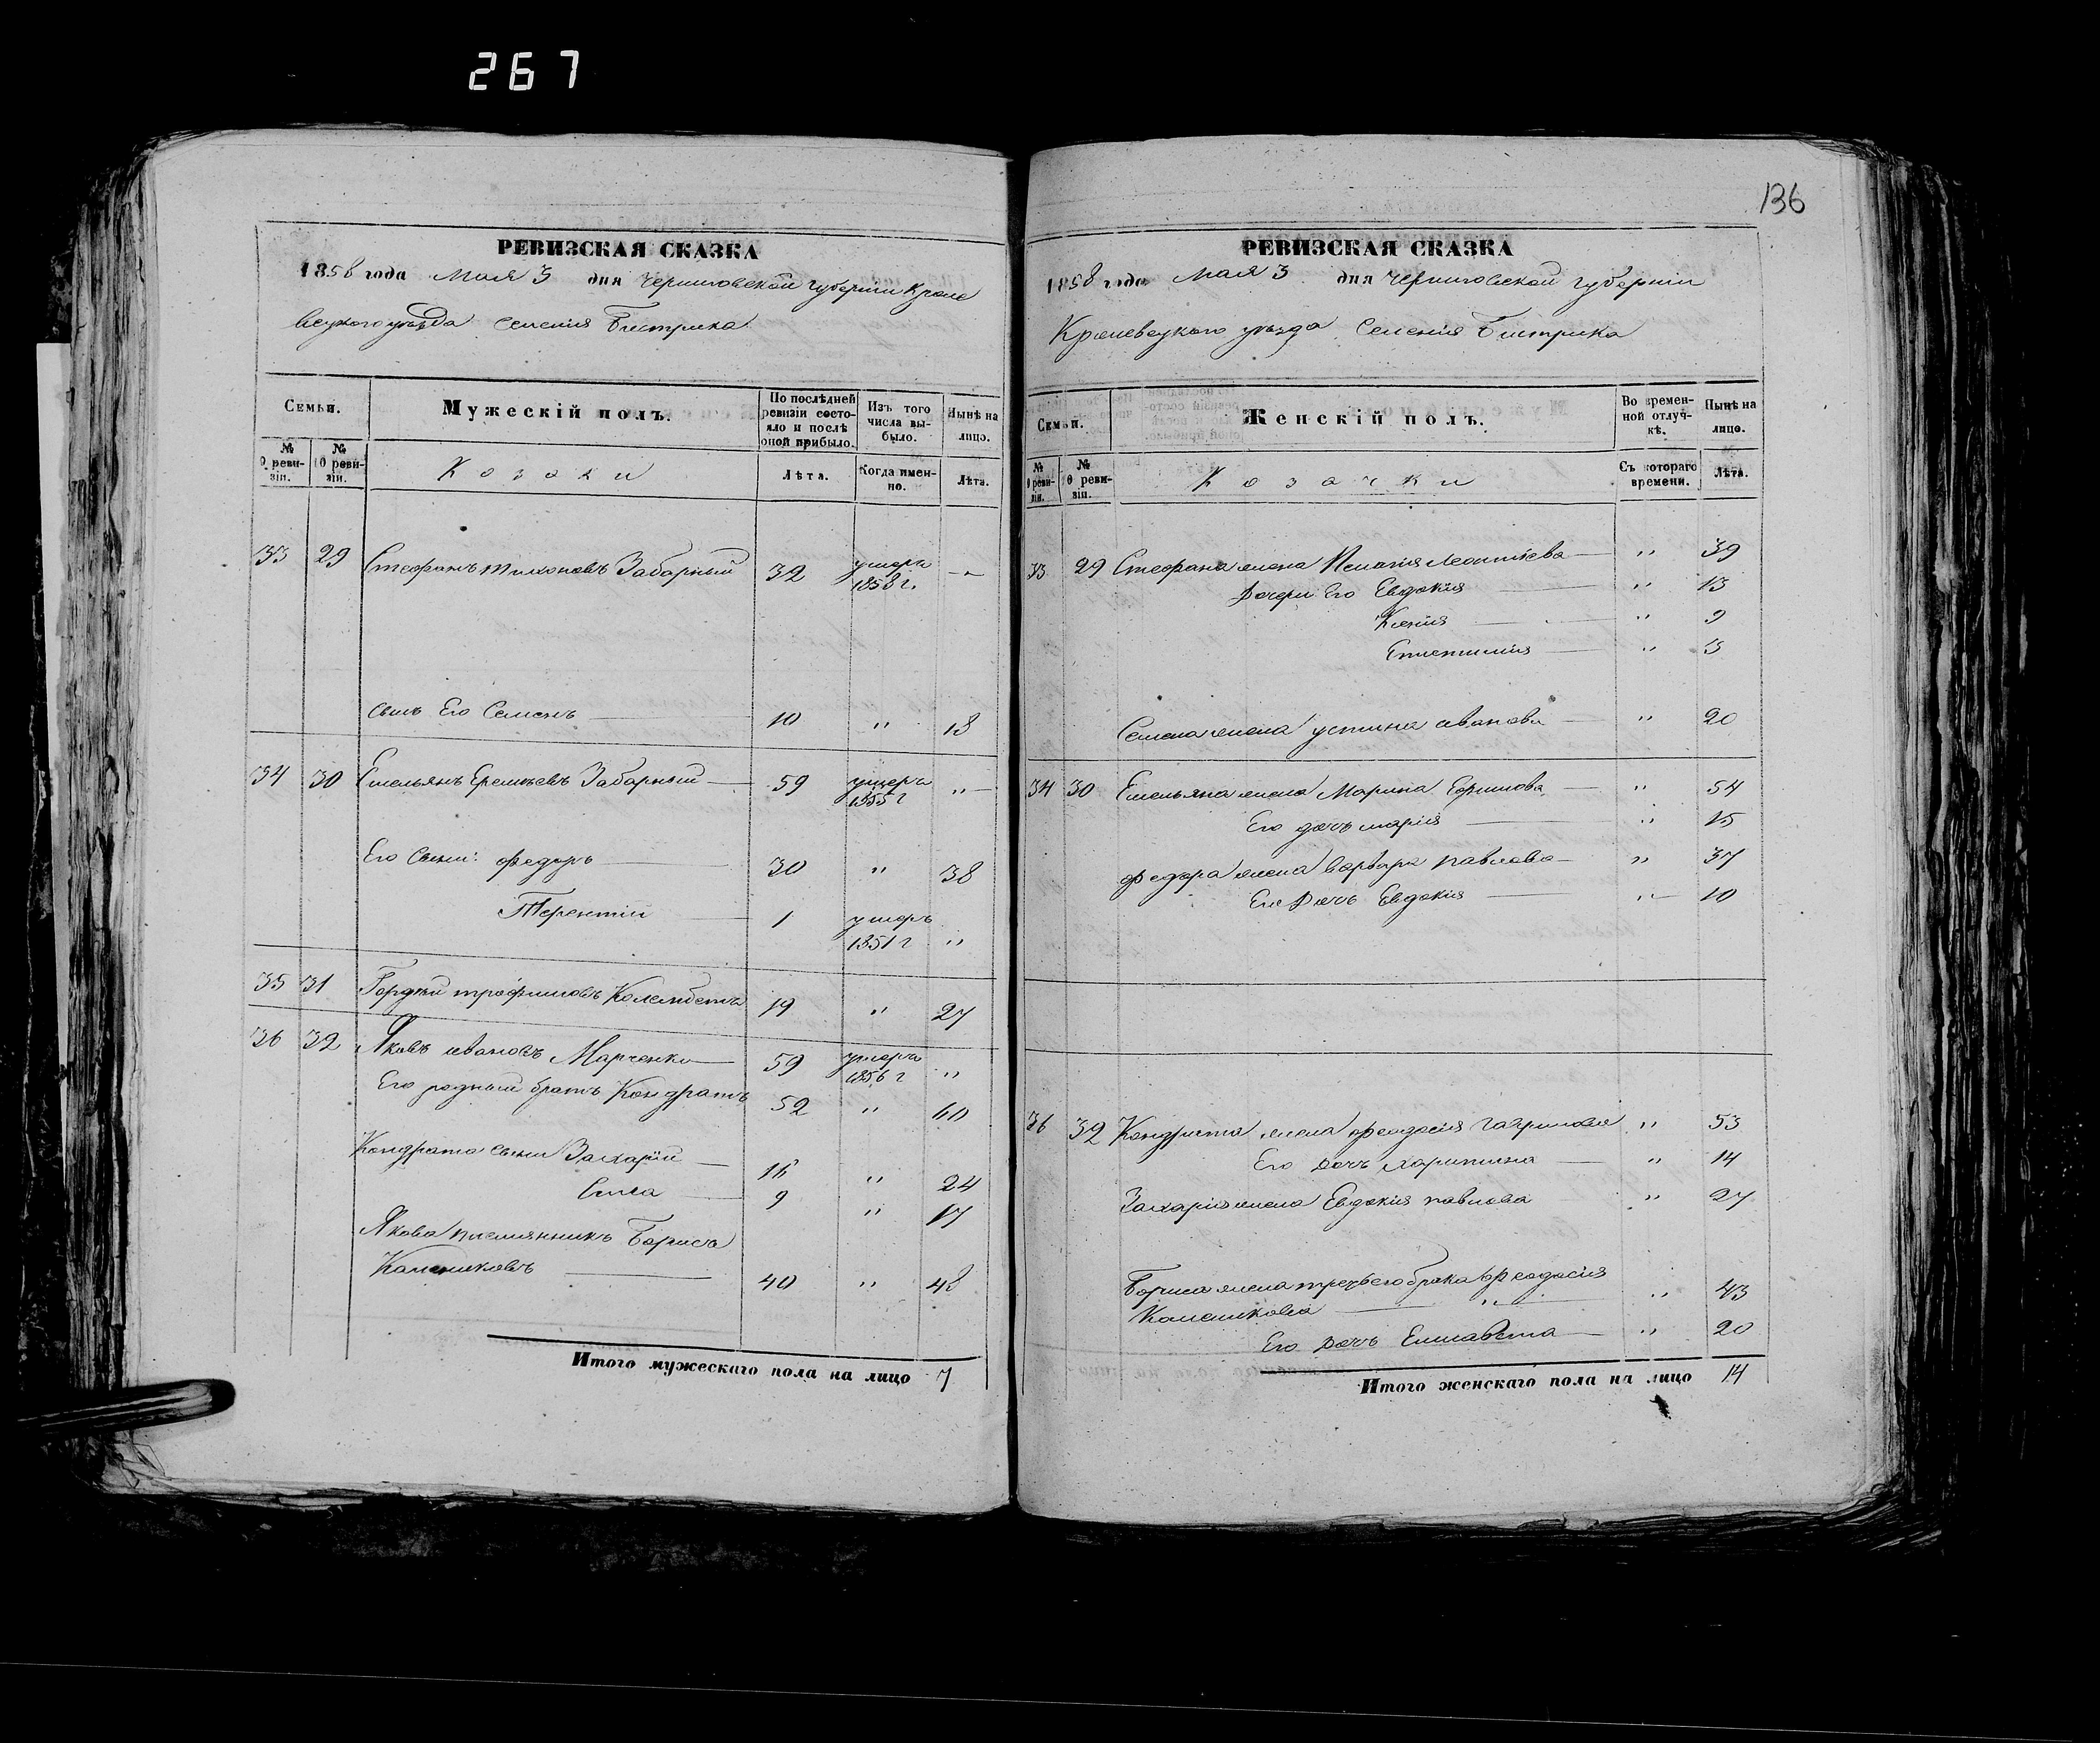 267
136
РЕВИЗСКАЯ СКАЗКА
1858 года Мая 3 дня Черниговской губерніи Кроле
вецкого уѣзда Селенія Бистрика
Семьи.
Мужескій полъ.
По послѣдней ревизіи состояло и послѣ оной прибыло.
Изъ того числа выбыло.
Нынѣ на лицо.
№ 9 ревизіи.
№ 10 ревизіи.
Козаки
Лѣта.
Когда именно.
Лѣта.
33 29 Стефанъ Тихоновъ Забарный 32 умеръ 1858 г. —
Сынъ Его Семенъ — 10 " 18
34 30 Емельянъ Еремѣевъ Забарный — 59 умеръ 1855 г "
Его Сыни: Федоръ — 30 " 38
Терентій — 1 умеръ 1851 г "
35 31 Гордѣй Трофимовъ 19 " 27
36 32 Яковъ ивановъ Марченко — 59 умеръ 1856 г "
Его родный братъ Кондратъ 52 " 60
Кондрата сыни Захарій — 16 " 24
— 9 " 17
Якова племянникъ Борисъ
— 40 " 48
Итого мужескаго пола на лицо 7
РЕВИЗСКАЯ СКАЗКА
1858 года Мая 3 дня Черниговской губерніи
Кролевецкого уѣзда Селенія Бистрика
Семьи.
Женскій полъ.
Во временной отлучкѣ.
Нынѣ на лицо.
№ 9 ревизіи.
№ 10 ревизіи.
Козачки
Съ котораго времени.
Лѣта.
33 29 Стефана жена Пелагія Леонтіева — " 39
Дочери Его Евдокія — " 13
Ксенія — " 9
Епистимія — " 3
Семена жена устина иванова — " 20
34 30 Емельяна жена Марина Ефимова — " 54
Его дочь марія — " 15
Федора жена варвара павлова — " 37
Его Дочь Евдокія — " 10
36 32 Кондрата жена феодосія Гаврилова " 53
Его дочь харитина — " 14
Захарія жена Евдокія павлова " 27
Бориса жена третьего брака феодосія
— " 43
Его дочь Елисавета — " 20
Итого женскаго пола на лицо 14